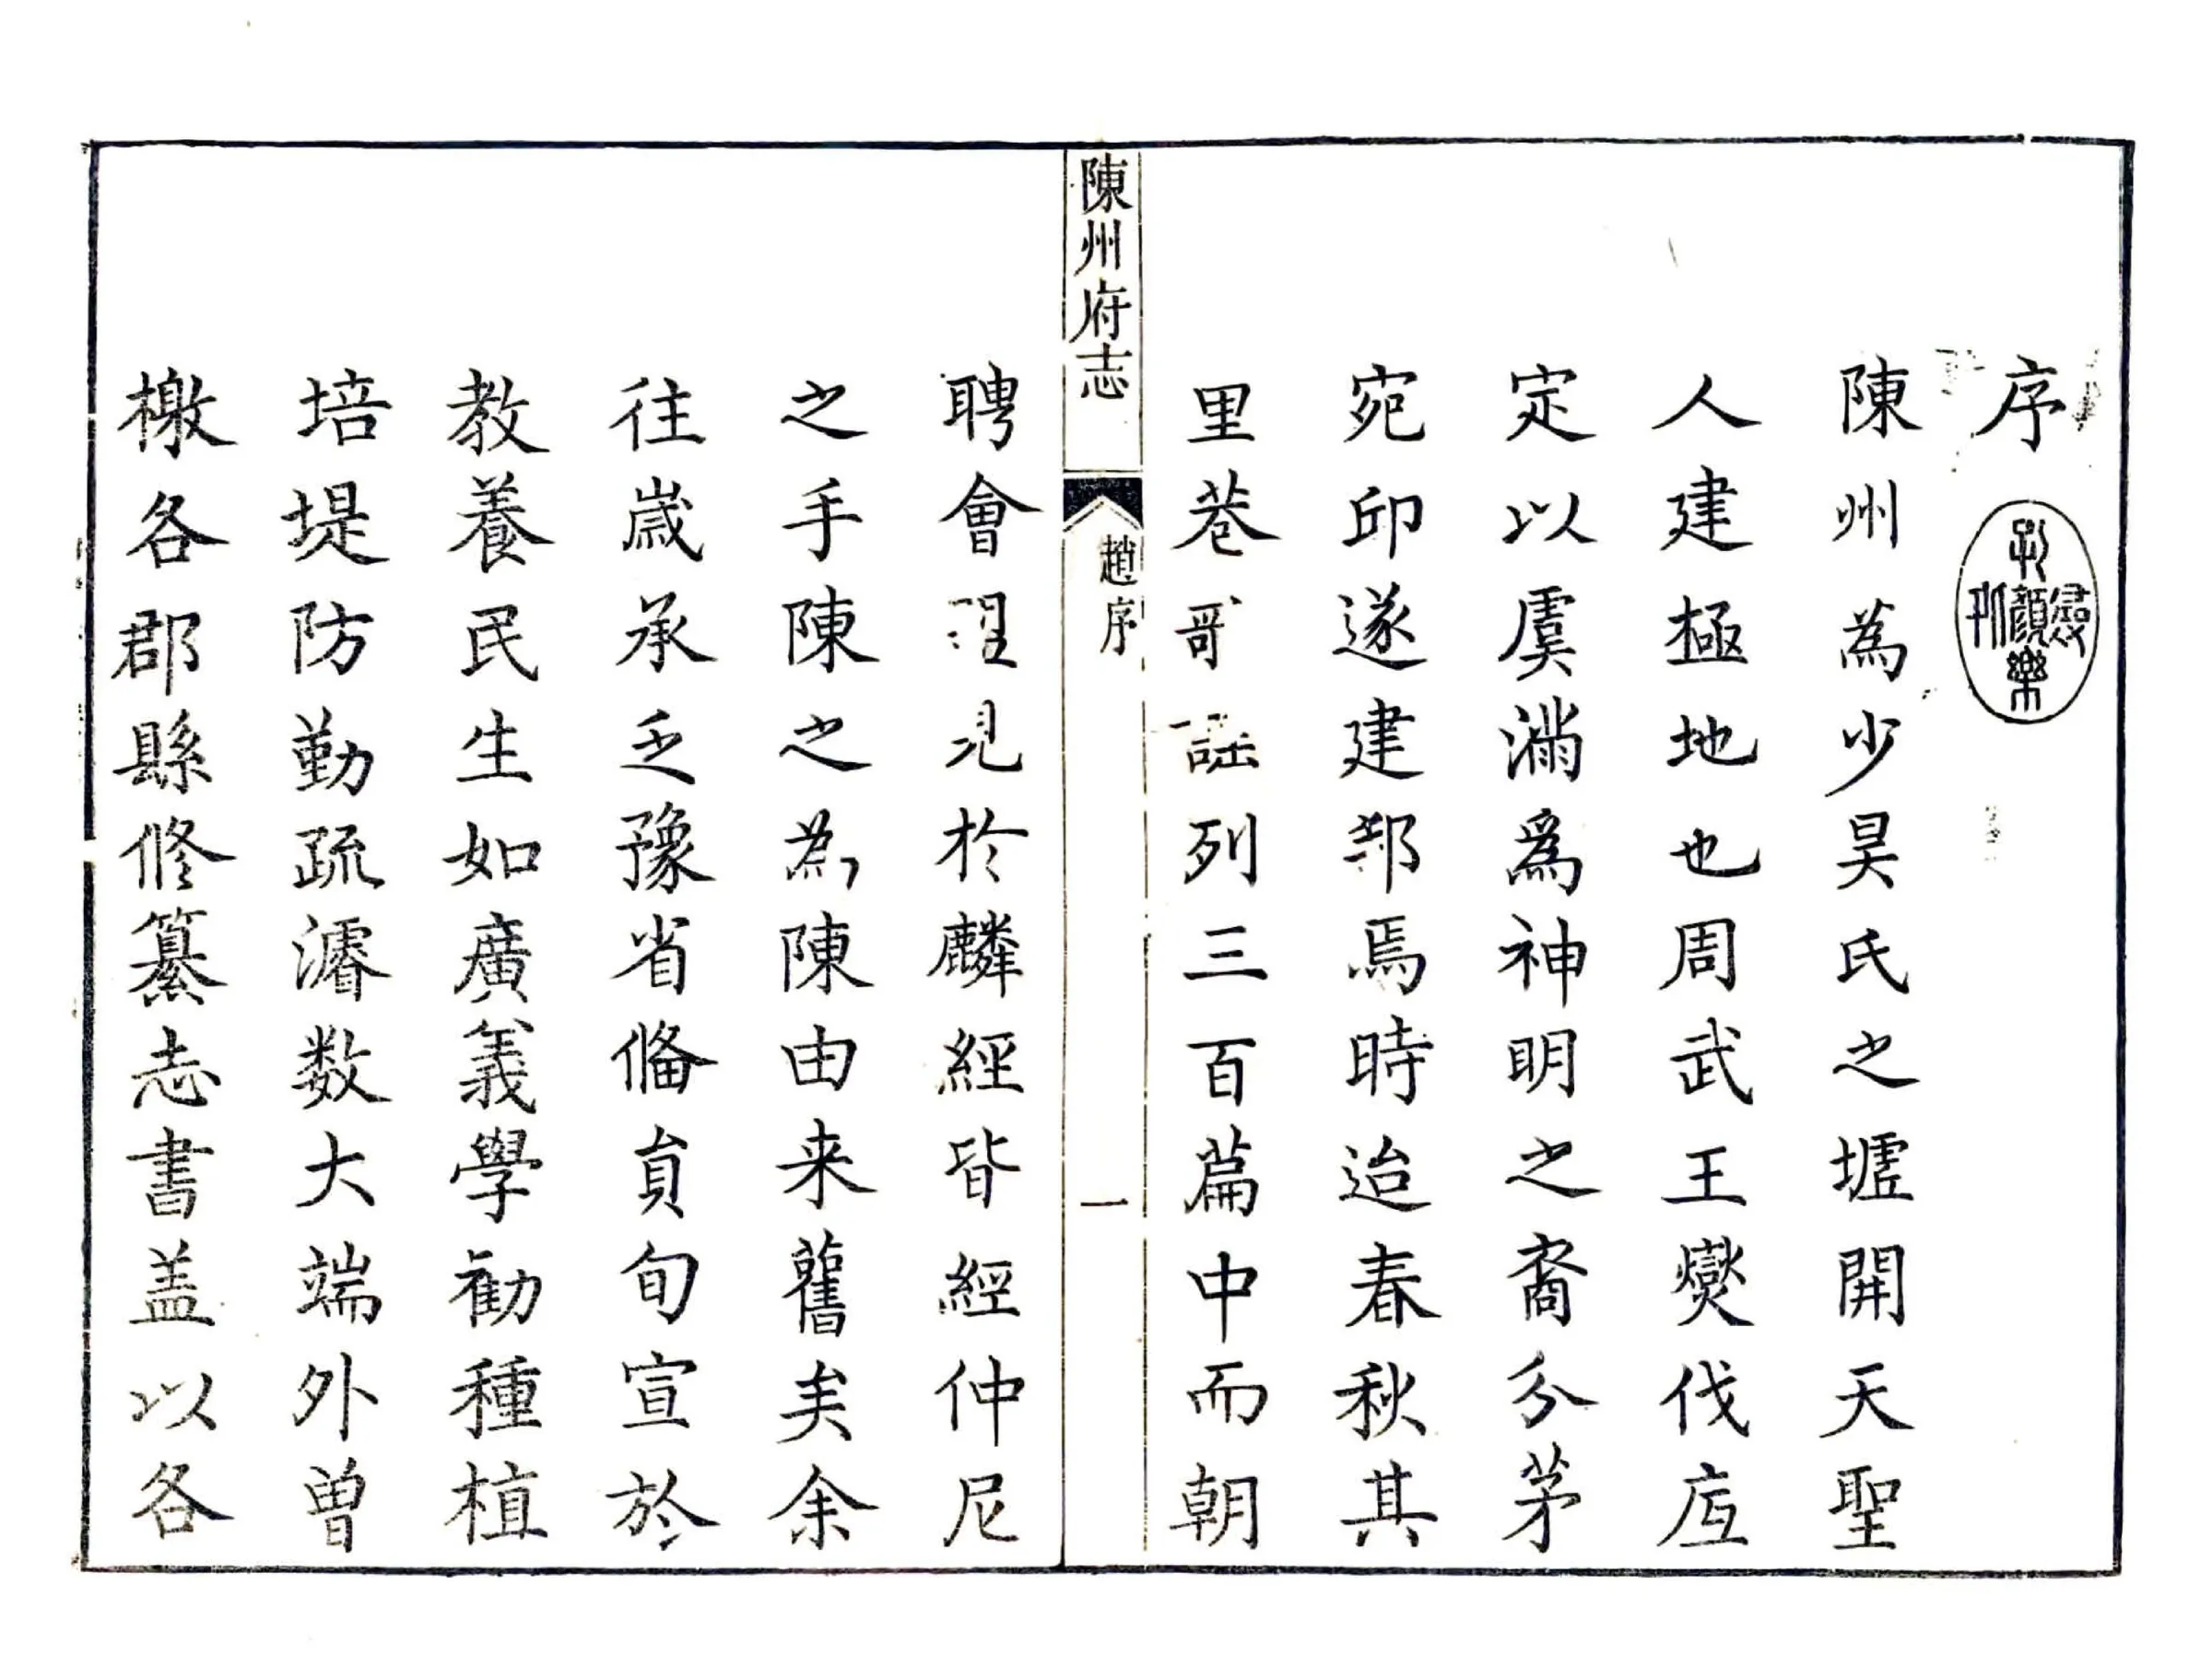 序
陳州為少昊氏之墟開天聖
人建極地也周武王燮伐㢤
定以虞滿爲神明之裔分茅
宛邱遂建邦焉時迨春秋其
里巷哥謡列三百篇中而朝
陳州府志
趙序
一
聘會盟見於麟經皆經仲尼
之手陳之為陳由来舊矣余
往歲承乏豫省俻員旬宣於
教養民生如廣義學勸種植
培堤防勤疏濬数大端外曽
檄各郡縣修纂志書盖以各